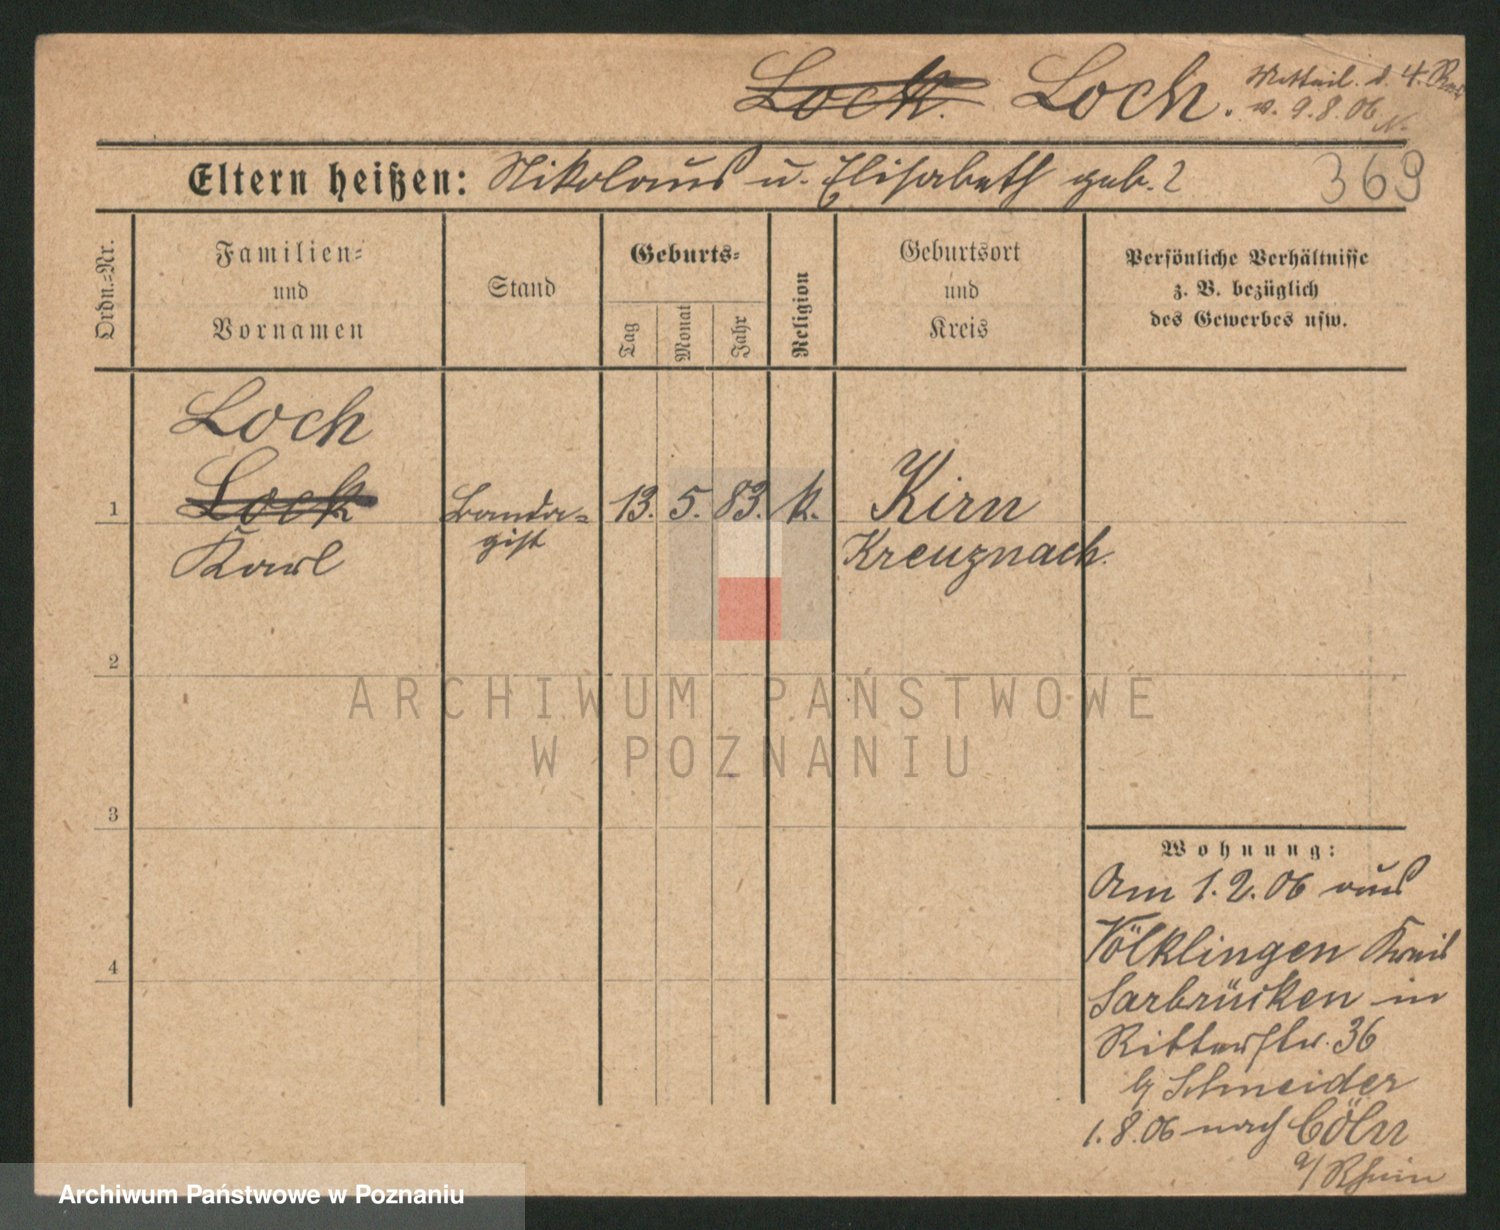 Lock. Loch. Mitteil. d. 4. Rev.
v. 9.8.06 N.
Eltern heißen: Nikolaus u. Elisabeth geb. ? 369
Ordn.-Nr.
Familien-
und
Vornamen
Stand
Geburts-
Tag
Monat
Jahr
Religion
Geburtsort
und
Kreis
Persönliche Verhältnisse
z. B. bezüglich
des Gewerbes usw.
Loch
1 Lock Banda- 13. 5. 83. k. Kirn
Karl gist Kreuznach.
2
ARCHIWUM PAŃSTWOWE
W POZNANIU
3
Wohnung:
Am 1.2.06 aus
Völklingen Kreis
4
Sarbrücken in
Ritterstr. 36
b/ Schneider
1.8.06 nach Cöln
a/ Rhein
Archiwum Państwowe w Poznaniu